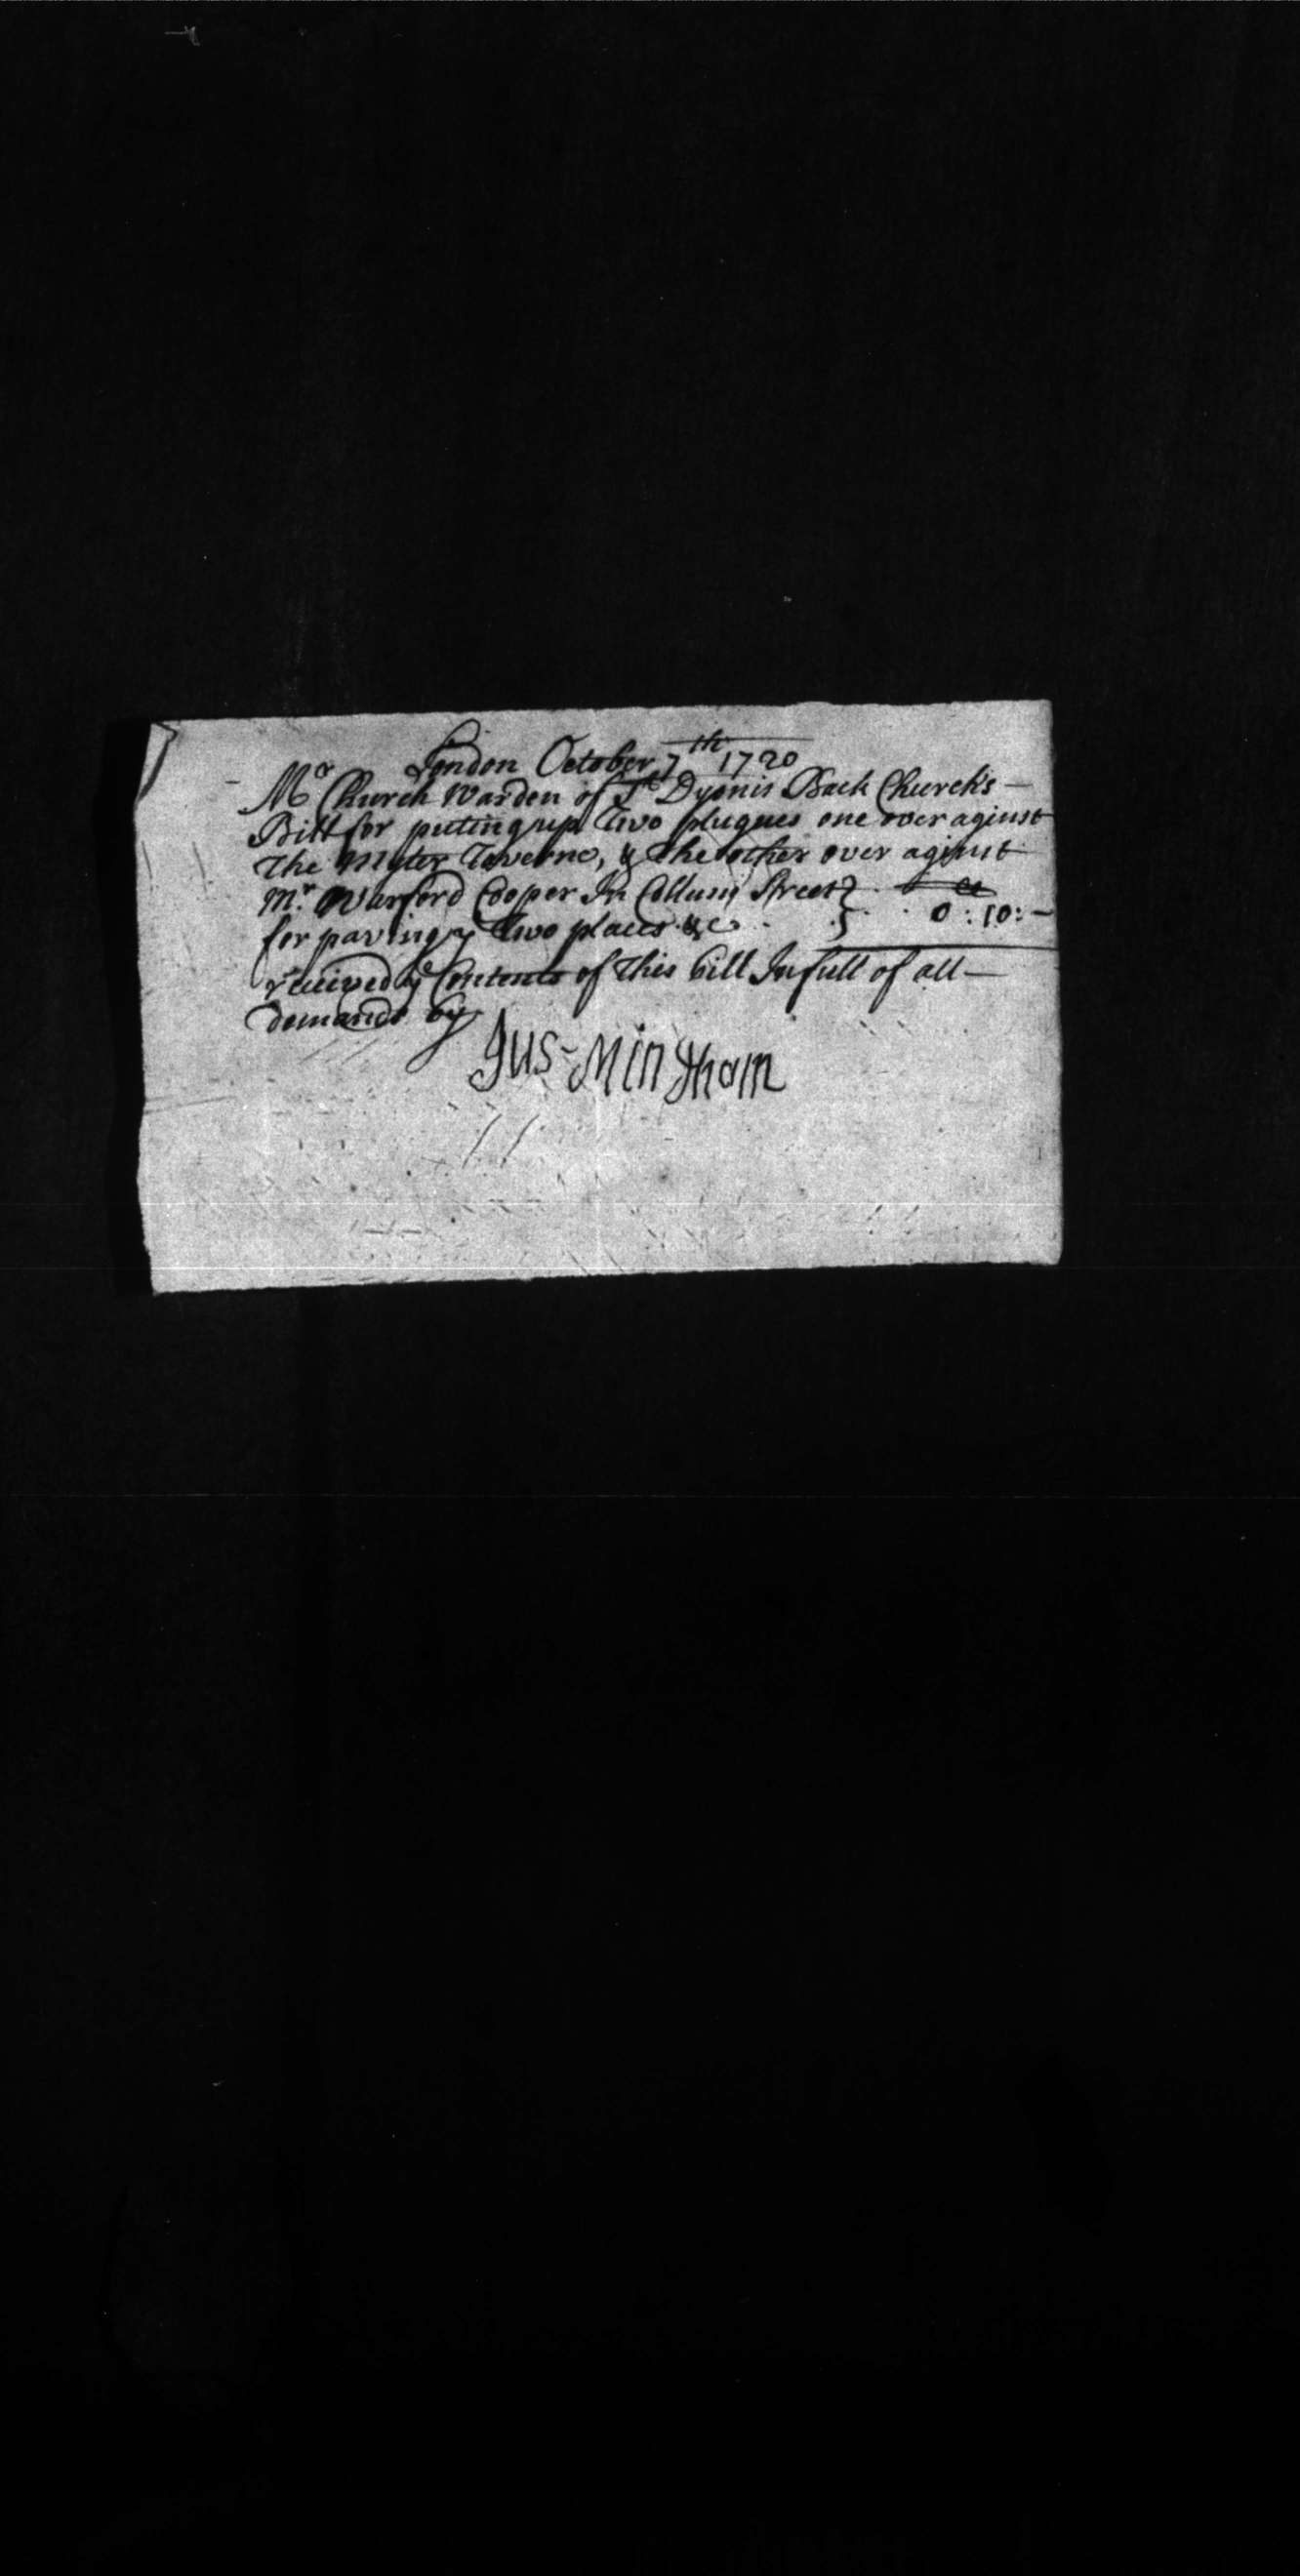 London October 7th 1720
Mr Church Warden of St Dyonis Back Church's —
Bill for puting up Two plugues one over aginst
The Myter Taverne, & The other over aginst
Mr. Warford Cooper In Collum Street
for paving ye Two places &c 0 : 10 : —
received ye Contents of This bill In full of all —
demands by
Jus - Mingham